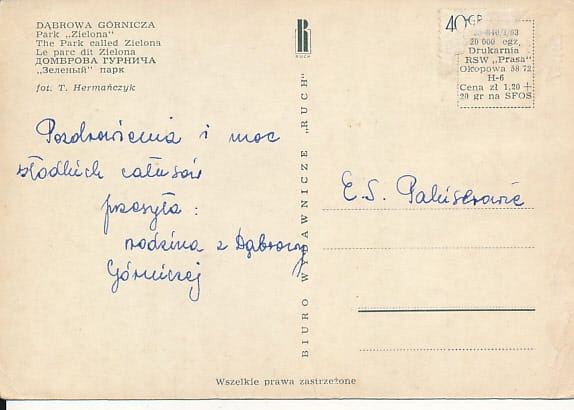 DĄBROWA GÓRNICZA
Park „Zielona"
The Park called Zielona
Le parc dit Zielona
ДОМБРОВА ГУРНИЧА
„Зеленый" парк
fot. T. Hermańczyk
Pozdrowienia i moc
słodkich całusów
przesyła :
rodzina z Dąbrowy
Górniczej
RUCH
BIURO WYDAWNICZE „RUCH"
40GR
20 000 egz.
Drukarnia
RSW „Prasa"
Okopowa 58/72
H-6
Cena zł 1,20 +
20 gr na SFOS
E. S.
Wszelkie prawa zastrzeżone